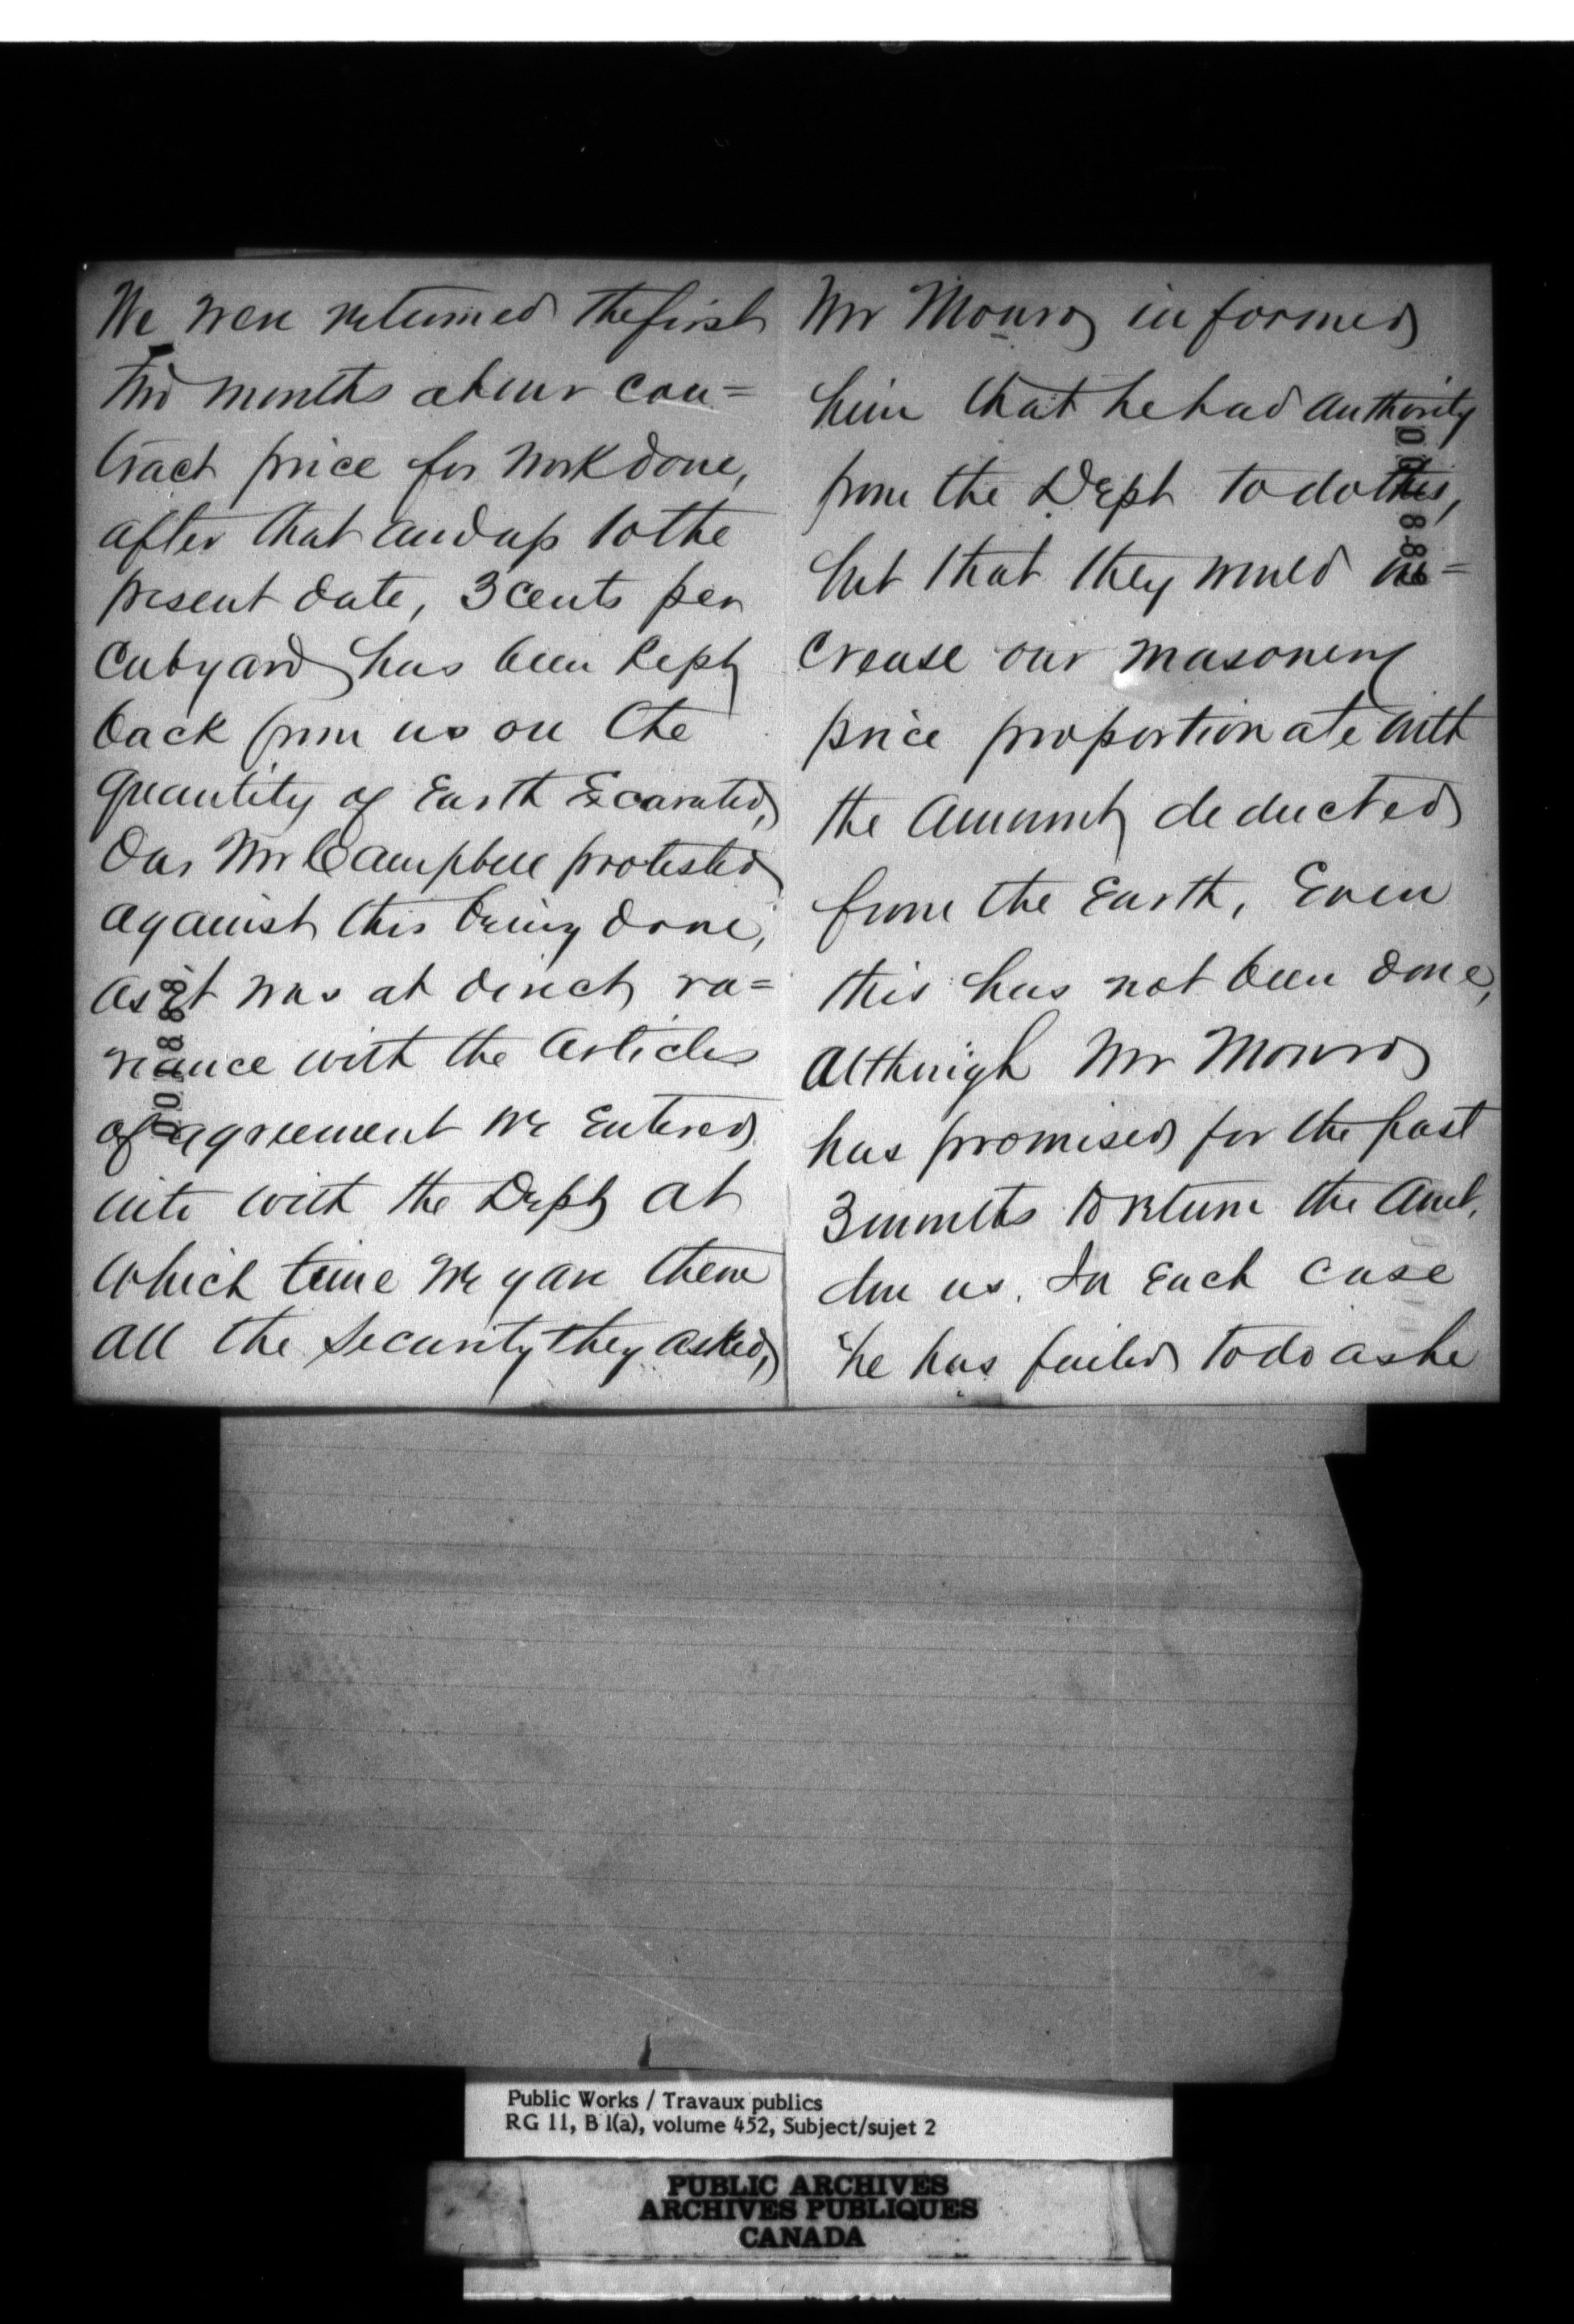 We were returned the first
two months at our con=
tract price for work done,
after that and up to the
present date, 3 cents per
Cub yard has been kept
back from us on the
quantity of Earth Excavated,
Our Mr Campbell protested
against this being done,
as it was at direct va=
riance with the Articles
of agreement we Entered
into with the Dept at
which time we gave them
all the Security they asked,
Mr Monro informed
him that he had authority
from the Dept to do this,
but that they would in=
crease our masonery
price proportionate with
the Amount deducted
from the Earth, Even
this has not been done,
Although Mr Monro
has promised for the past
3 months to return the Amt.
due us. In Each case
he has failed to do as he
Public Works / Travaux publics
RG 11, B 1(a), volume 452, Subject/sujet 2
PUBLIC ARCHIVES
ARCHIVES PUBLIQUES
CANADA